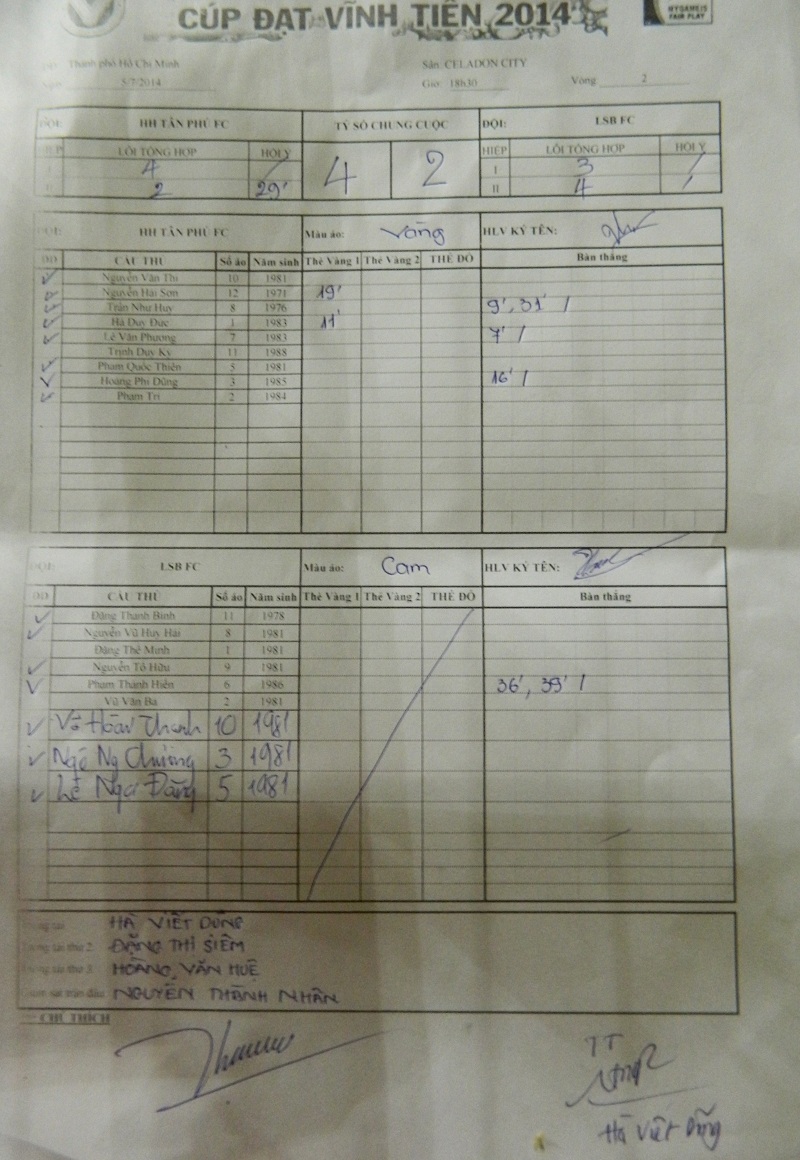 CÚP ĐẠT VĨNH TIẾN 2014
MYGAMEIS FAIR PLAY
Thành phố Hồ Chí Minh Sân: CELADON CITY
5/7/2014 Giờ: 18h30 Vòng 2
ĐỘI: HH TÂN PHÚ FC TỶ SỐ CHUNG CUỘC ĐỘI: LSB FC
HIỆP LỖI TỔNG HỢP HỘI Ý 4 2 HIỆP LỖI TỔNG HỢP HỘI Ý
I 4 / I 3 /
II 2 29' II 4 /
ĐỘI: HH TÂN PHÚ FC Màu áo: Vàng HLV KÝ TÊN:
DD CẦU THỦ Số áo Năm sinh Thẻ Vàng 1 Thẻ Vàng 2 THẺ ĐỎ Bàn thắng
Nguyễn Văn Thi 10 1981
Nguyễn Hải Sơn 12 1971 19'
Trần Như Huy 8 1976 9', 31' /
Hà Duy Đức 1 1983 11'
Lê Văn Phương 7 1983 7' /
Trịnh Duy Kỳ 11 1988
Phạm Quốc Thiên 5 1981
Hoàng Phi Dũng 3 1985 16' /
Phạm Trí 2 1984
ĐỘI: LSB FC Màu áo: Cam HLV KÝ TÊN:
DD CẦU THỦ Số áo Năm sinh Thẻ Vàng 1 Thẻ Vàng 2 THẺ ĐỎ Bàn thắng
Đặng Thanh Bình 11 1978
Nguyễn Vũ Huy Hải 8 1981
Đặng Thế Minh 1 1981
Nguyễn Tố Hữu 9 1981
Phạm Thanh Hiền 6 1986 36', 39' /
Vũ Văn Ba 2 1981
Võ Hoài Thanh 10 1981
Ngô Ng Chương 3 1981
Lê Ngọc Đăng 5 1981
Trọng tài: HÀ VIẾT DŨNG
Trọng tài thứ 2: ĐẶNG THỊ SIÊM
Trọng tài thứ 3: HOÀNG VĂN HUỆ
Giám sát trận đấu: NGUYỄN THÀNH NHÂN
CHÚ THÍCH
TT
Hà Viết Dũng